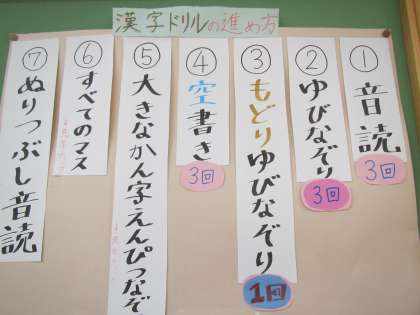 漢字ドリルの進め方
①音読
3回
②ゆびなぞり
3回
③もどりゆびなぞり
1回
④空書き
3回
⑤大きなかん字えんぴつなぞ
⑥すべてのマス
⑦ぬりつぶし音読